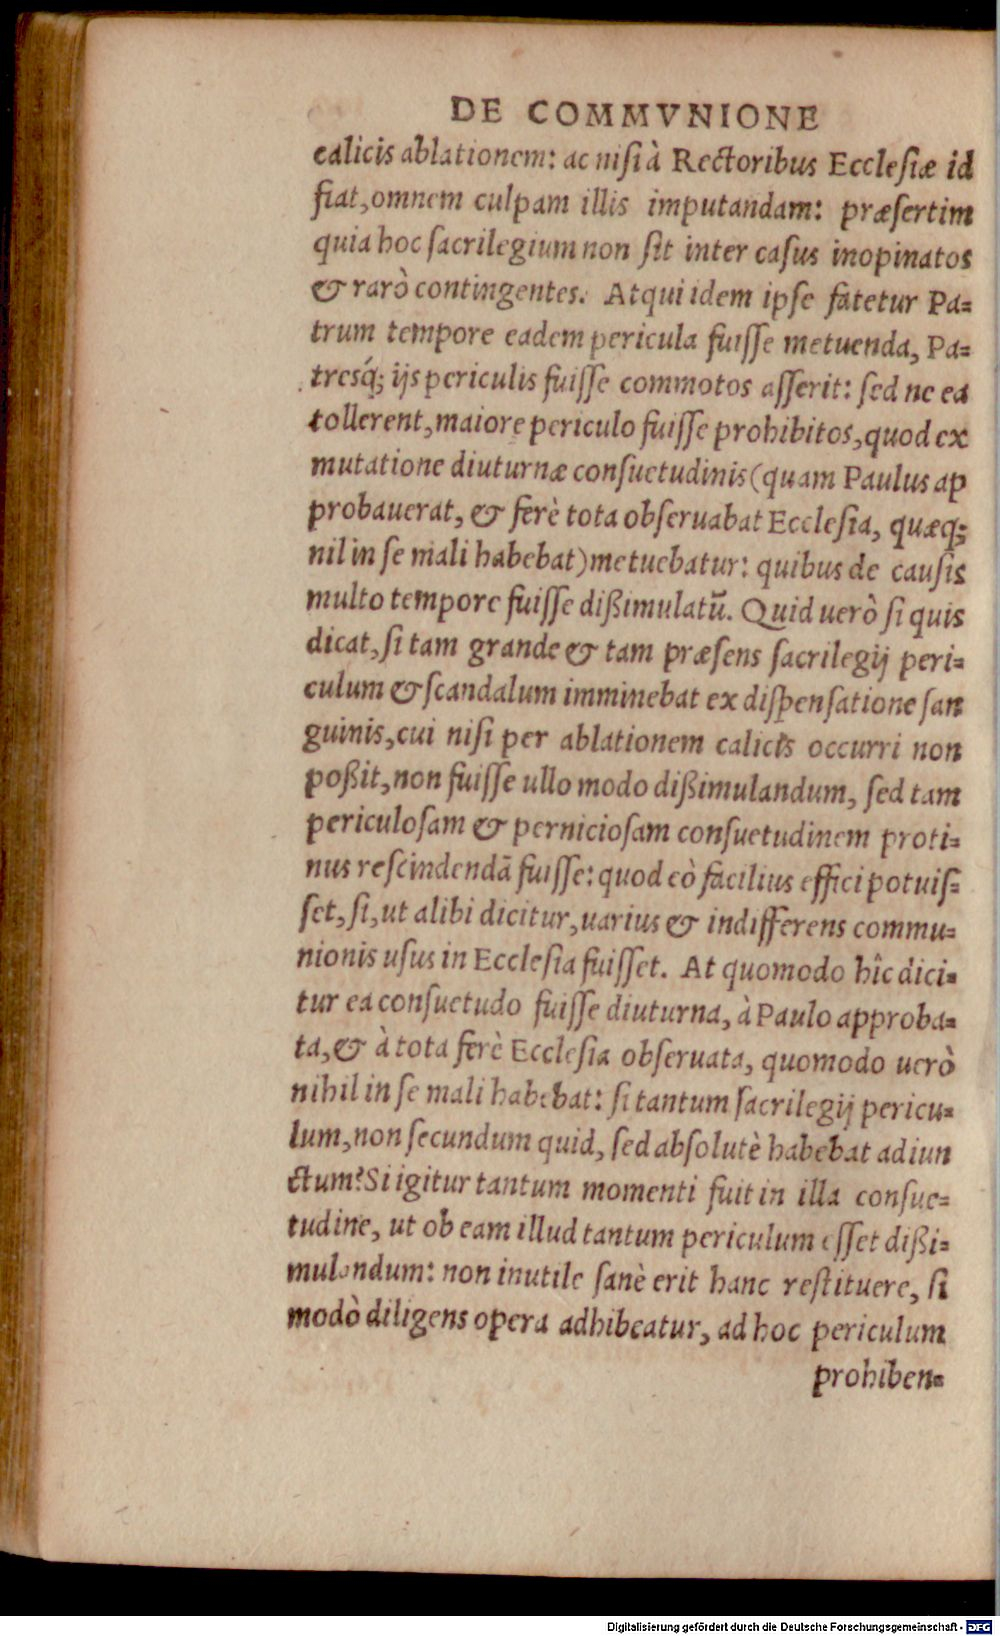 DE COMMVNIONE
calicis ablationem: ac nisi à Rectoribus Ecclesiæ id
fiat, omnem culpam illis imputandam: præsertim
quia hoc sacrilegium non sit inter casus inopinatos
& rarò contingentes. Atqui idem ipse fatetur Pa=
trum tempore eadem pericula fuisse metuenda, Pa=
tresq́; ijs periculis fuisse commotos asserit: sed ne ea
tollerent, maiore periculo fuisse prohibitos, quod ex
mutatione diuturnæ consuetudinis (quam Paulus ap
probauerat, & ferè tota obseruabat Ecclesia, quæq;
nil in se mali habebat) metuebatur: quibus de causis
multo tempore fuisse dißimulatū. Quid uerò si quis
dicat, si tam grande & tam præsens sacrilegij peri=
culum & scandalum imminebat ex dispensatione san
guinis, cui nisi per ablationem calicis occurri non
poßit, non fuisse ullo modo dißimulandum, sed tam
periculosam & perniciosam consuetudinem proti=
nus rescindendā fuisse: quod eò facilius effici potuis=
set, si, ut alibi dicitur, uarius & indifferens commu=
nionis usus in Ecclesia fuisset. At quomodo hîc dici=
tur ea consuetudo fuisse diuturna, à Paulo approba=
ta, & à tota ferè Ecclesia obseruata, quomodo uerò
nihil in se mali habebat: si tantum sacrilegij pericu=
lum, non secundum quid, sed absolutè habebat adiun
ctum? Si igitur tantum momenti fuit in illa consue=
tudine, ut ob eam illud tantum periculum esset dißi=
mulandum: non inutile sanè erit hanc restituere, si
modò diligens opera adhibeatur, ad hoc periculum
prohiben=
Digitalisierung gefördert durch die Deutsche Forschungsgemeinschaft - DFG